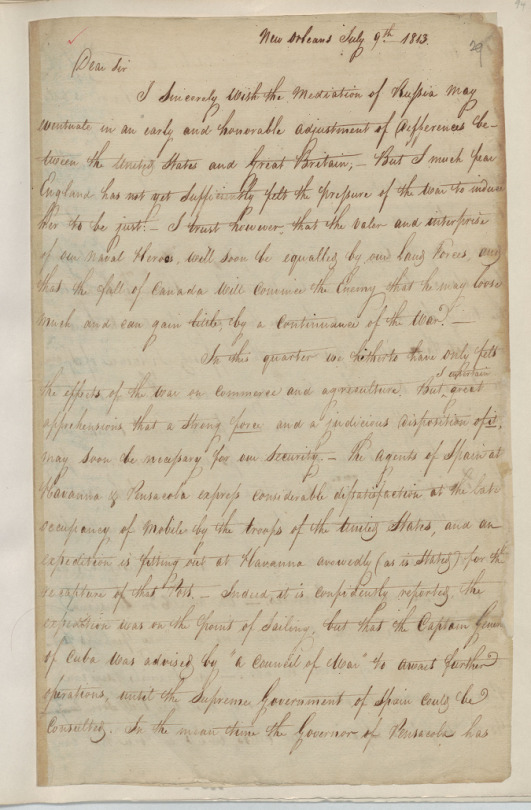 New Orleans July 9th 1813.
29
Dear Sir
I Sincerely wish the Mediation of Russia may
eventuate in an early and honorable adjustment of defferences be-
tween the United States and Great Britain; - But I much fear
England has not yet sufficiently felt the pressure of the War to induce
Her to be just! - I trust however, that the valor and interprise
of our Naval Heroes, will soon be equalled by our land Forces, and
that the fall of Canada will convince the Enemy that he may loose
much and can gain little, by a continuance of the War! -
In this quarter we hitherto have only felt
I entertain
the effects of the war on commerce and agreculture. But great
apprehensions, that a strong force and a judicious disposition of it,
may soon be necessary for our Security. - The agents of Spain at
Havanna & Pensacola express considerable dissatisfaction at the late
occupancy of Mobile by the troops of the United States, and an
expedition is fitting out at Havanna avowedly (as is Stated) for the
recapture of that Post. - Indeed, it is confidently reported, the
expedition was on the point of Sailing, but that the Captain General
of Cuba was advised by "a Council of War" to await further
operations, until the Supreme Government of Spain could be
Consulted. In the mean time the Governor of Pensacola has